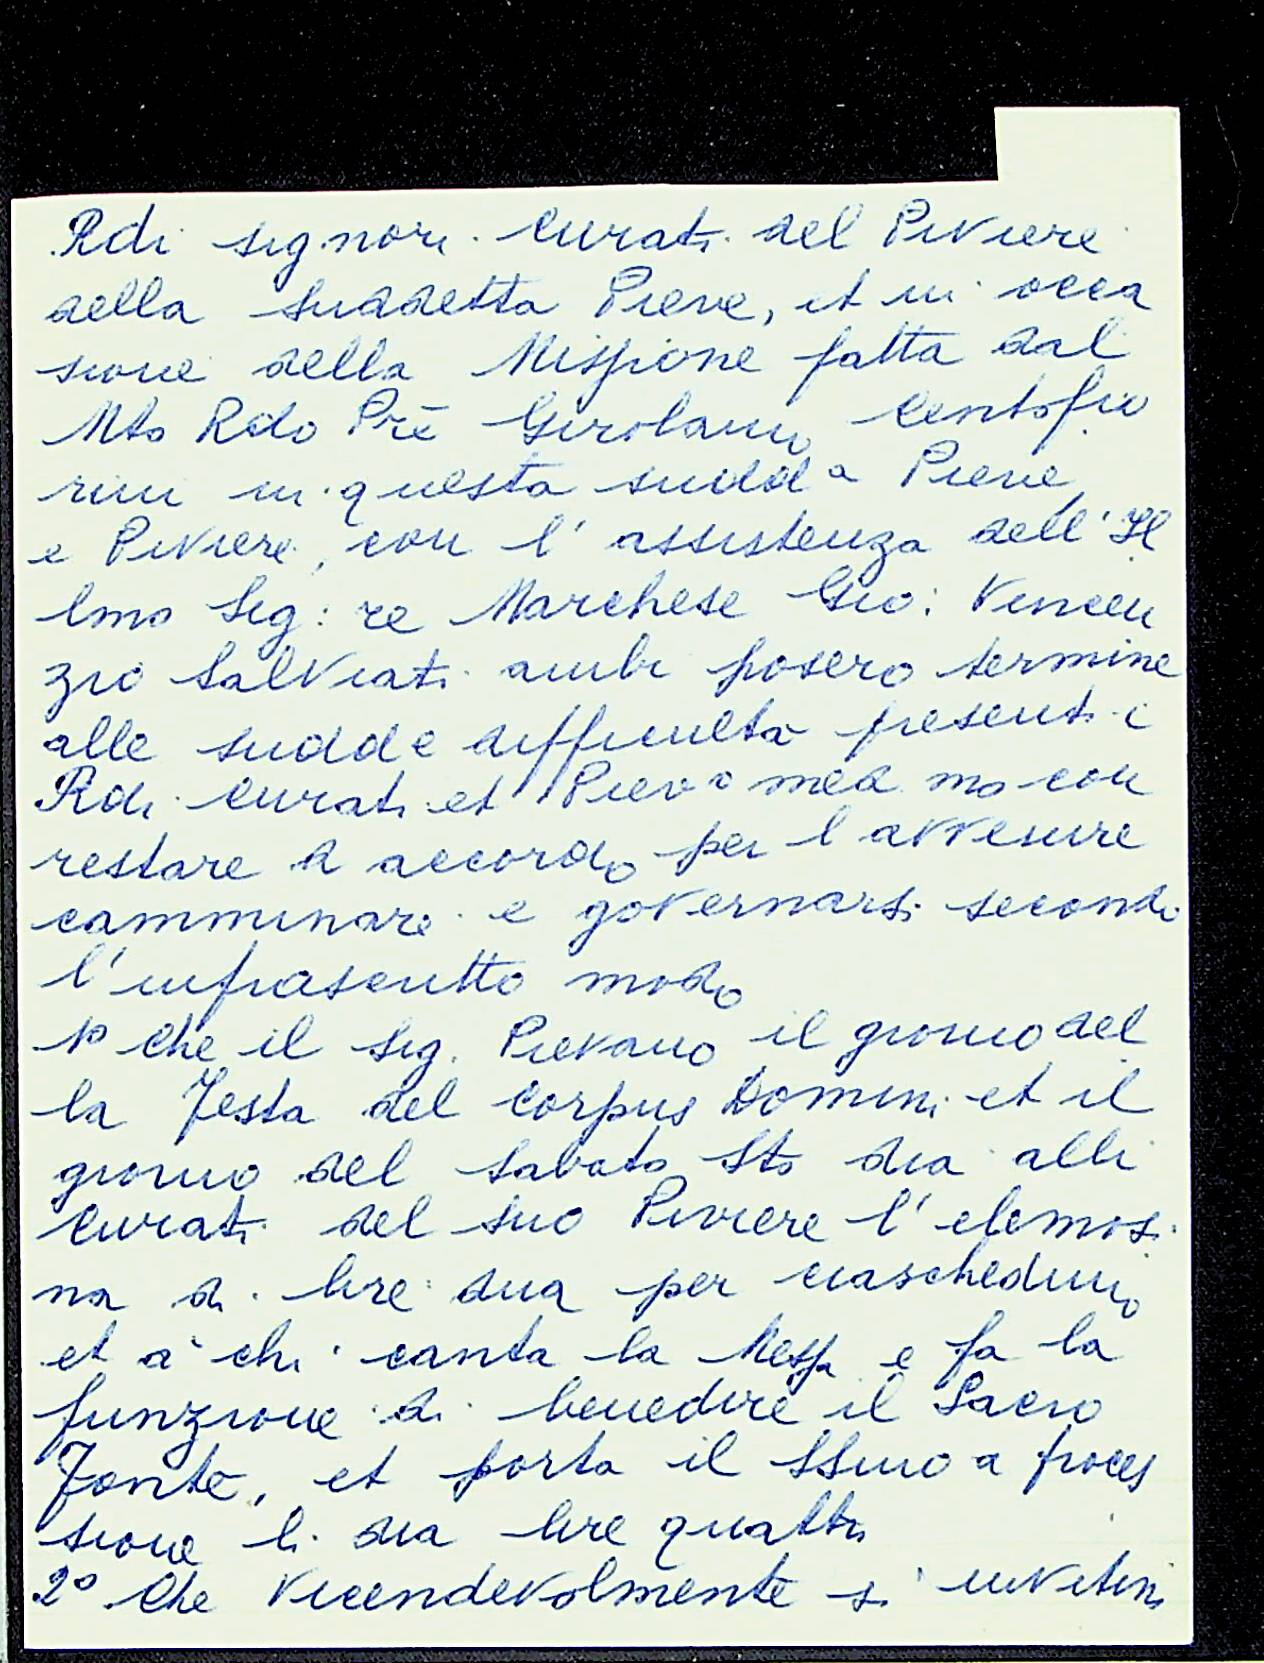 Rdi signori Curati del Piviere
della suddetta Pieve, et in occa
sione della Missione fatta dal
Mto Rdo Prē Girolamo Centofio
rini in questa sudda Pieve
e Piviere, con l'assistenza dell'Il
lmo Sig:re Marchese Gio: Vincen
zio Salviati ambi posero termine
alle sudde difficultà presenti i
Rdi Curati et Pievo med mo con
restare d accordo per l avvenire
camminare e governarsi secondo
l'infrascritto modo
1° Che il Sig. Pievano il giorno del
la Festa del Corpus Domini et il
giorno del Sabato Sto dia alli
Curati del suo Piviere l'elemosi
na di lire dua per ciascheduno
et à chi canta la Messa e fa la
funzione di benedire il Sacro
Fonte, et porta il SSmo a proces
sione li dia lire quattro
2° Che vicendevolmente s'invitino